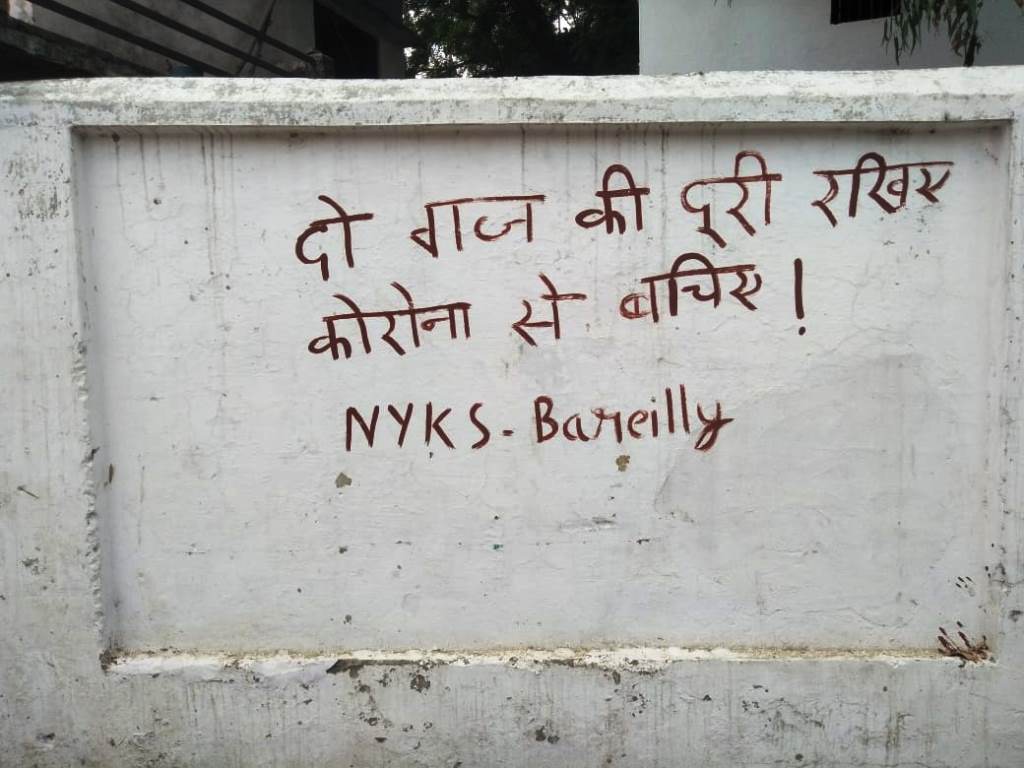 दो गज की दूरी रखिए
कोरोना से बचिए !
NYKS - Bareilly